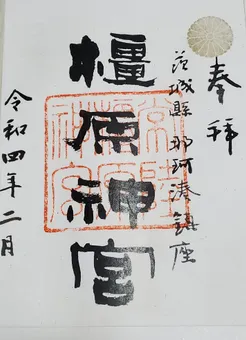 奉拜
茨城縣那珂湊鎮座
橿原神宮
令和四年二月